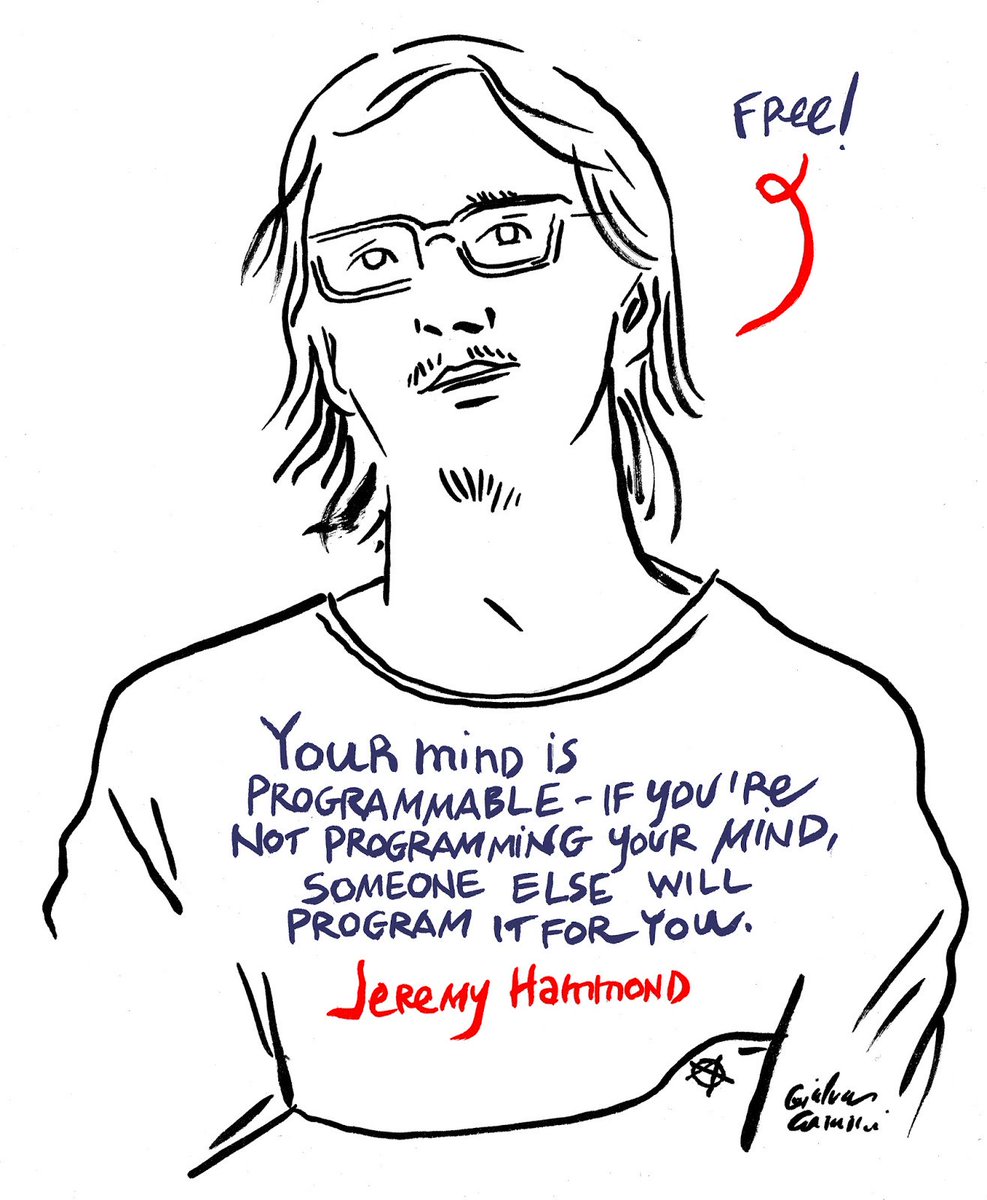 FRee!
YouR miND is
PROGRAMMABLE - IF YOU'Re
NOT PROGRAMMiNG YOUR MiND,
SOMEONE ELSE WILL
PROGRAM IT FOR YOU.
JeReMY HAMMOND